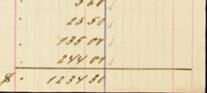 5 60 √
" 23 50 √
" 135 00 √
" 244 00 √
$ " 1234 30